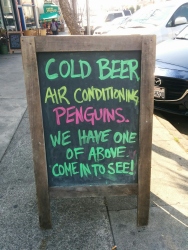 COLD BEER
AIR CONDITIONING
PENGUINS.
WE HAVE ONE
OF ABOVE.
COME IN TO SEE!